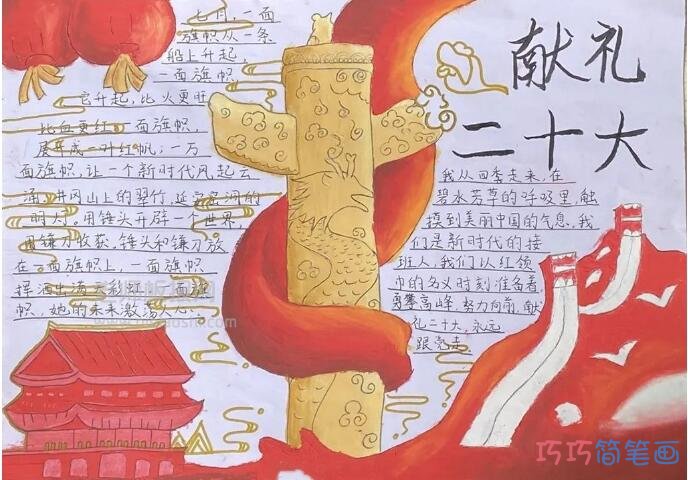 献礼
二十大
七月,一面
旗帜从一条
船上升起,
一面旗帜,
它升起,比火更旺
比血更红,一面旗帜,
展开成一叶红帆;一万
面旗帜,让一个新时代风起云
涌,井冈山上的翠竹,延安窑洞的
明火,用锤头开辟一个世界,
用镰刀收获,锤头和镰刀放
在一面旗帜上,一面旗帜
挥洒出满天彩虹,一面旗
帜,她的未来激荡人心。
我从四季走来,在
碧水芳草的呼吸里,触
摸到美丽中国的气息,我
们是新时代的接
班人,我们以红领
巾的名义时刻准备着,
勇攀高峰,努力向前,献
礼二十大,永远
跟党走
巧巧简笔画